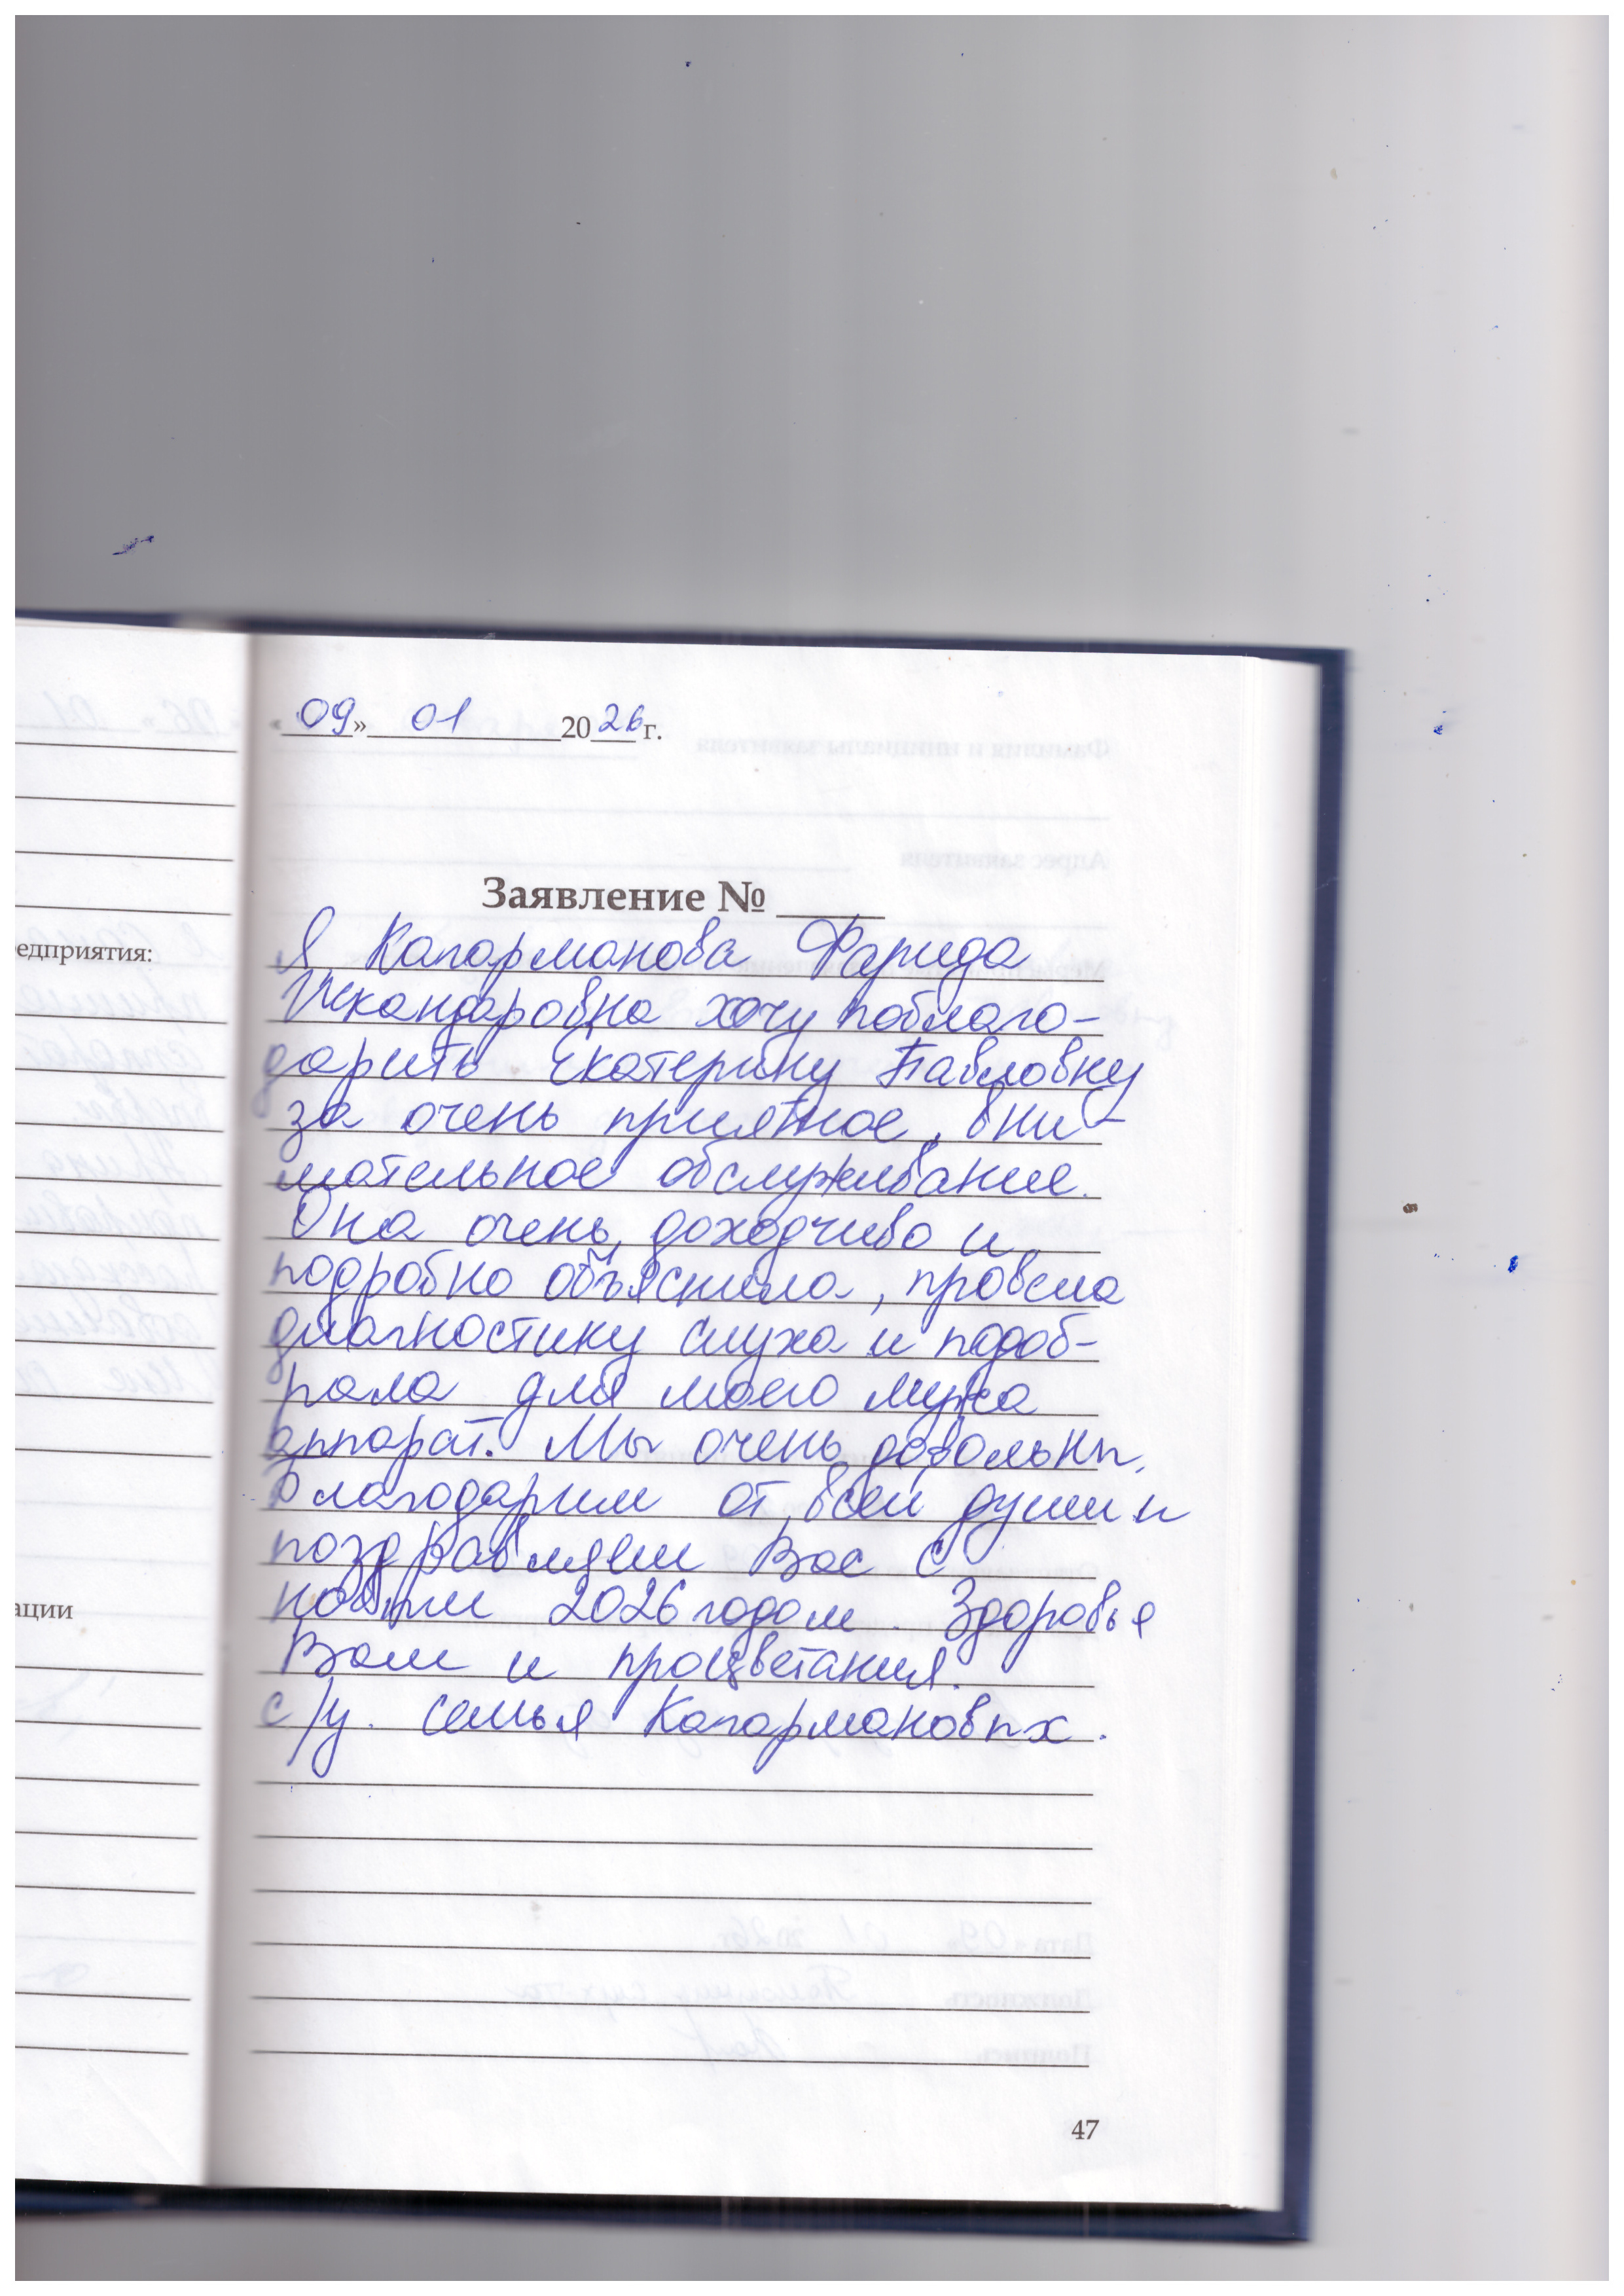 «09» 01 2026 г.
Заявление №
Я Капарманова Фарида
Искандаровна хочу поблаго-
дарить Екатерину Павловну
за очень приятное, вни-
мательное обслуживание.
Она очень доходчиво и
подробно объяснила, провела
диагностику слуха и подоб-
рала для моего мужа
аппарат. Мы очень довольны,
благодарим от всей души и
поздравляем Вас с
новым 2026 годом. Здоровья
Вам и процветания.
с/у. семья Капармановых.
47
едприятия:
ации